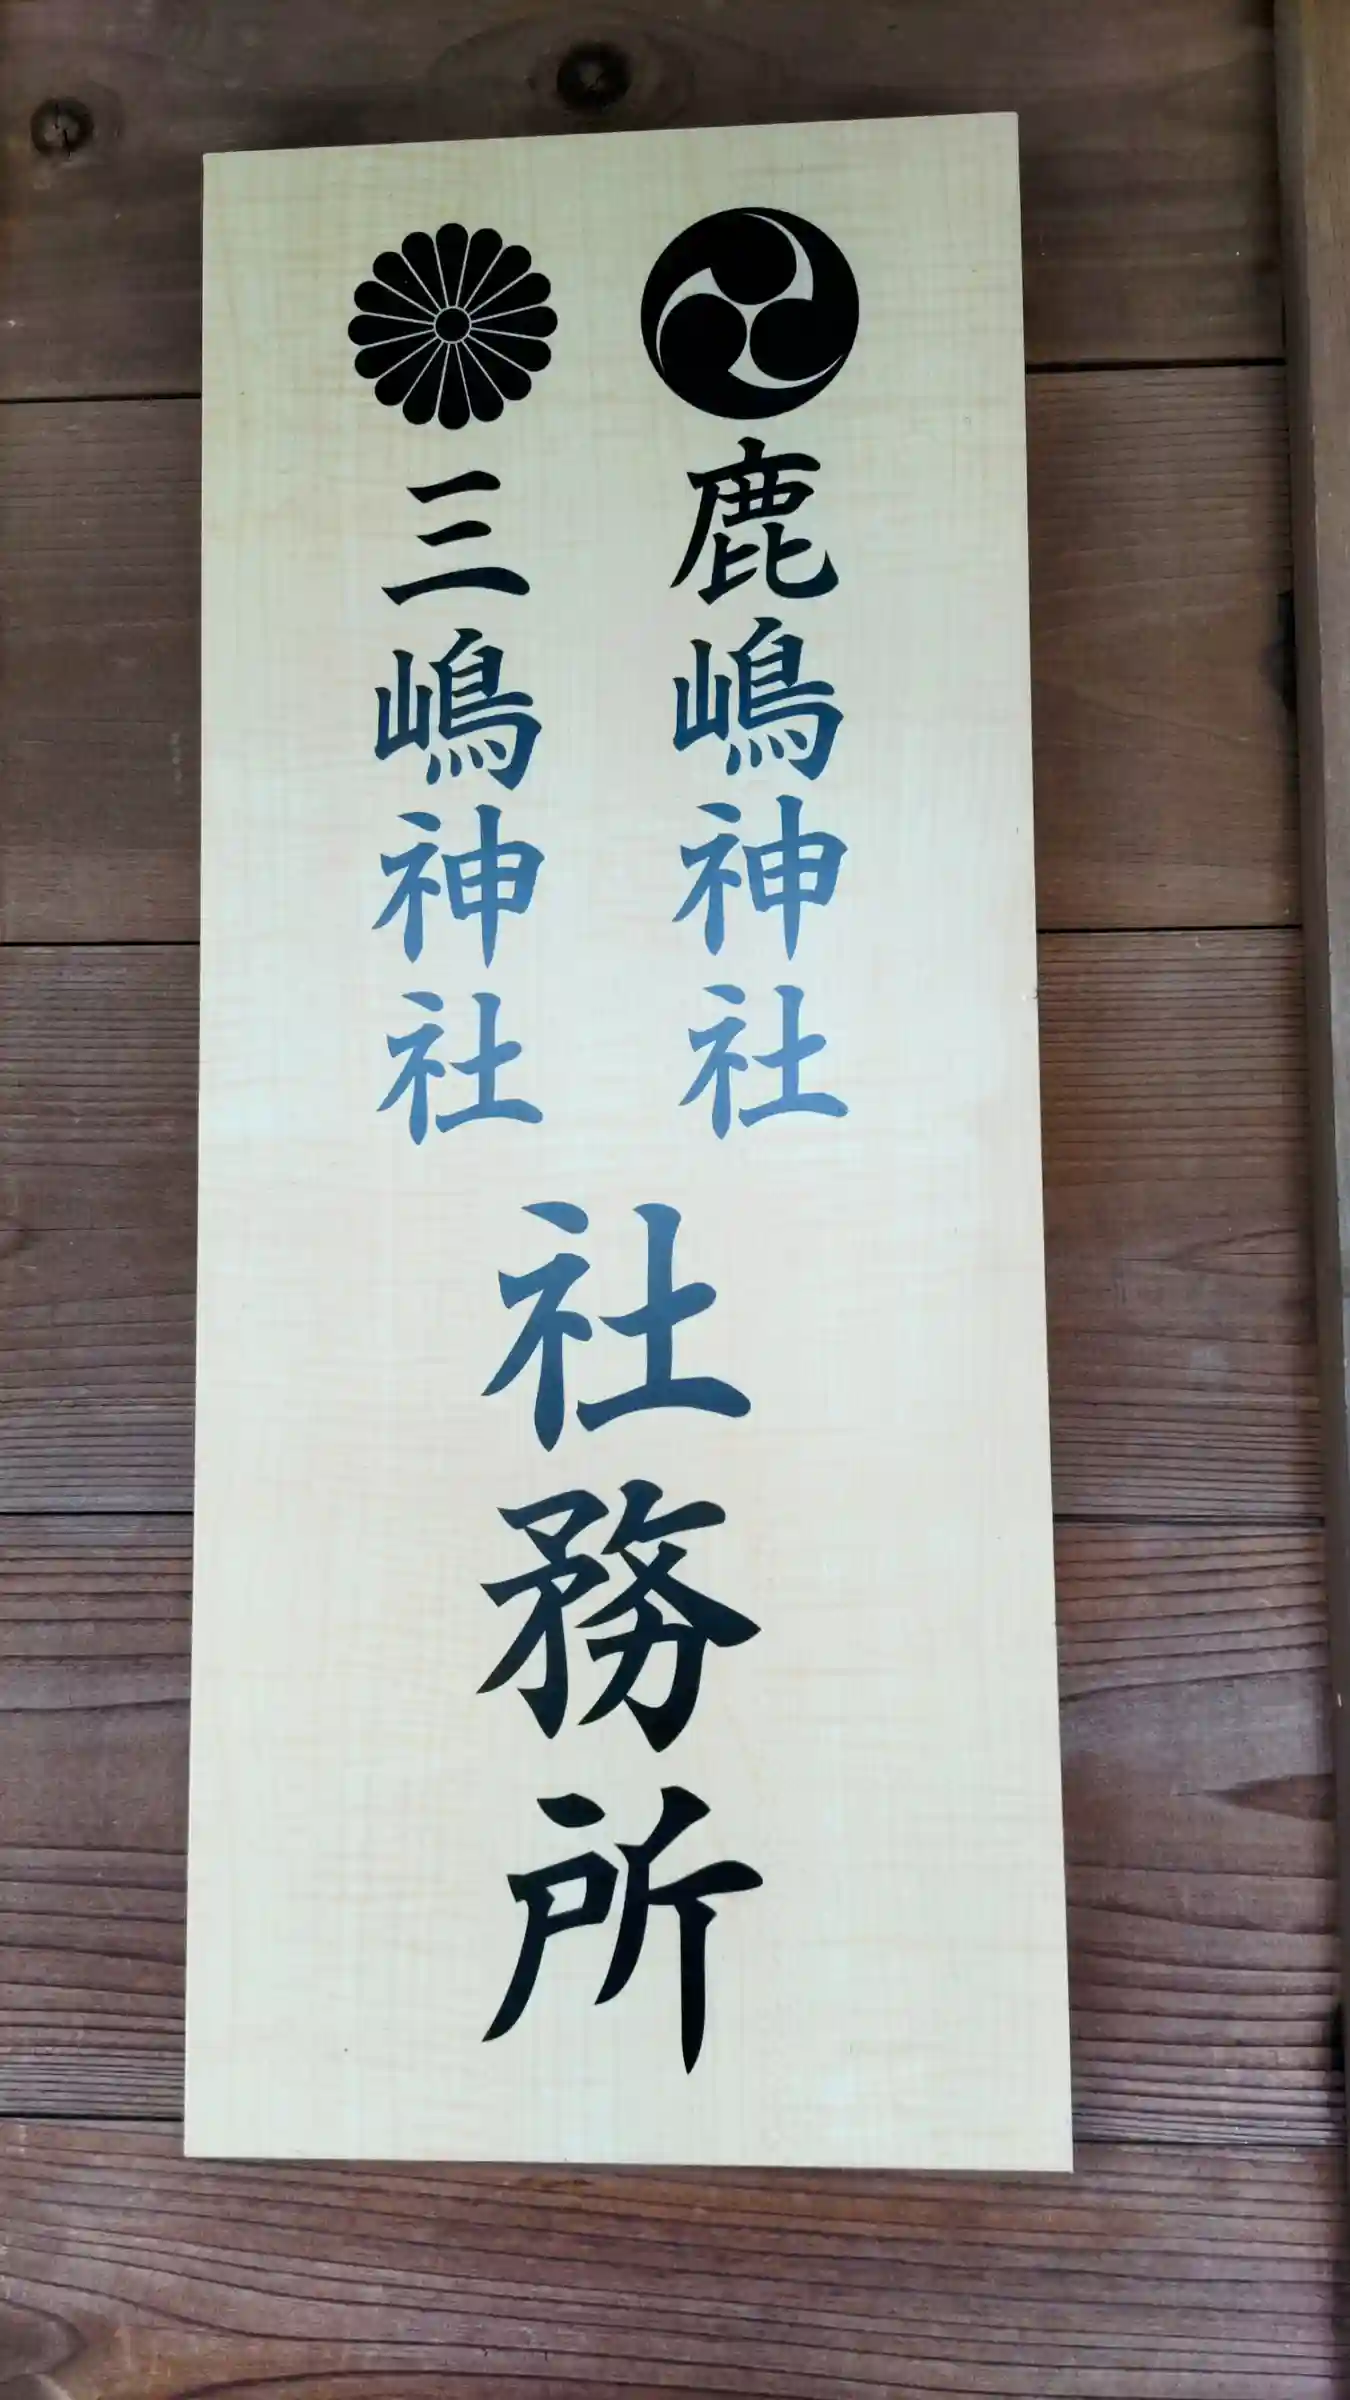 鹿嶋神社
三嶋神社
社務所